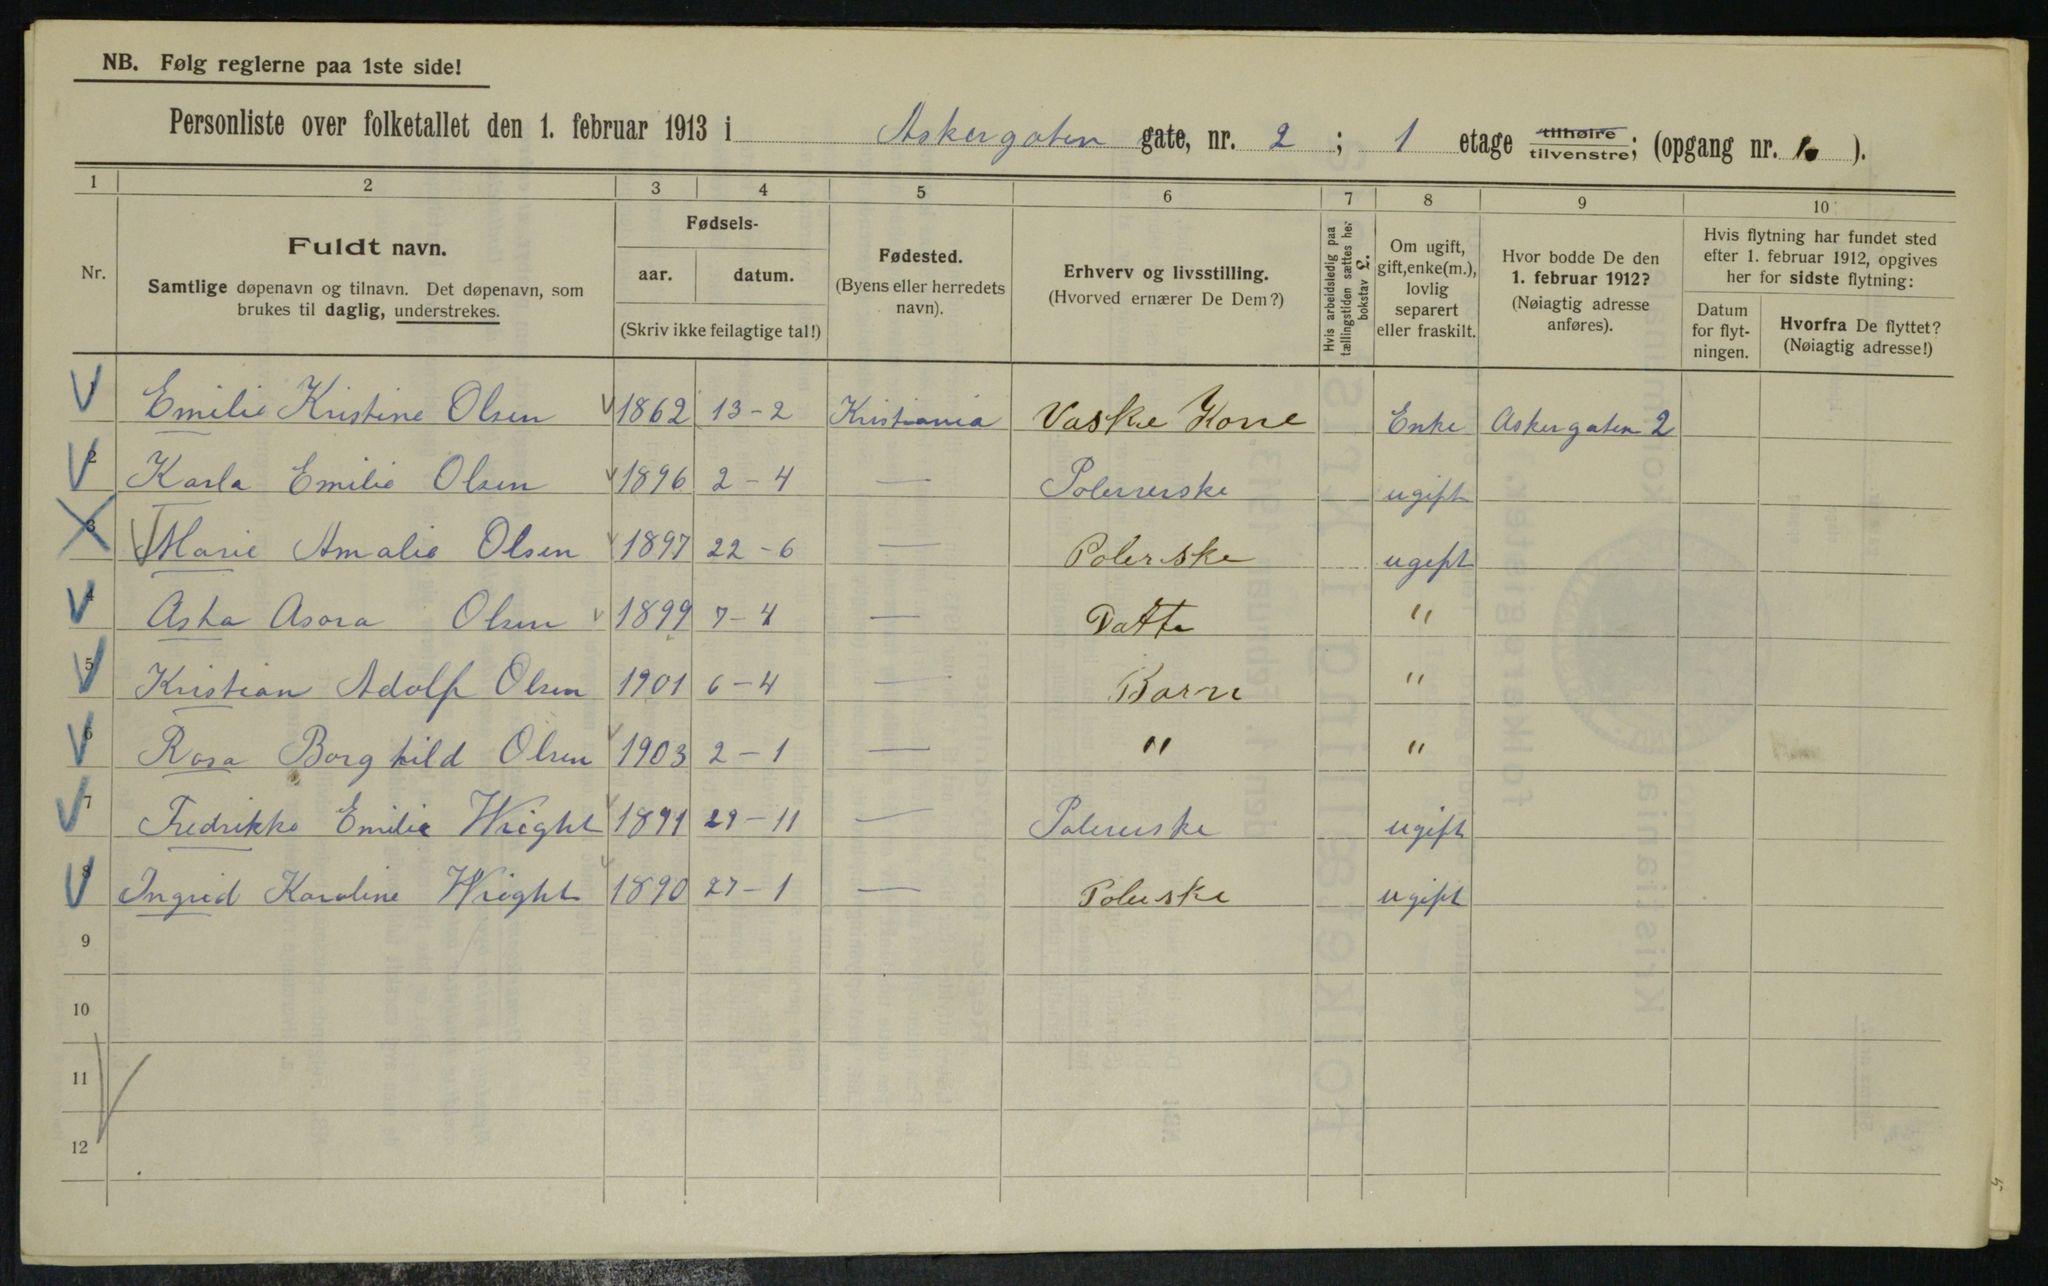 NB. Følg reglerne paa 1ste side!
Personliste over folketallet den 1. februar 1913 i Askergaten gate, nr. 2 ; 1 etage tilhøire tilvenstre; (opgang nr. ).
1 2 3 4 5 6 7 8 9 10
Nr.
Fuldt navn.
Samtlige døpenavn og tilnavn. Det døpenavn, som
brukes til daglig, understrekes.
Fødsels-
aar. datum.
(Skriv ikke feilagtige tal!)
Fødested.
(Byens eller herredets
navn).
Erhverv og livsstilling.
(Hvorved ernærer De Dem?)
Hvis arbeidsledig paa
tællingstiden sættes her
bokstav L.
Om ugift,
gift, enke(m.),
lovlig
separert
eller fraskilt.
Hvor bodde De den
1. februar 1912?
(Nøiagtig adresse
anføres).
Hvis flytning har fundet sted
efter 1. februar 1912, opgives
her for sidste flytning:
Datum
for flyt-
ningen.
Hvorfra De flyttet?
(Nøiagtig adresse!)
1 Emilie Kristine Olsen 1862 13-2 Kristiania Vaske Kone Enke Askergaten 2
2 Karla Emilie Olsen 1896 2-4 — Polererske ugift
3 Marie Amalie Olsen 1897 22-6 — Polerske ugift
4 Asta Asora Olsen 1899 7-4 — Datte "
5 Kristian Adolf Olsen 1901 6-4 — Barn "
6 Rosa Borghild Olsen 1903 2-1 — " "
7 Fredrikke Emilie Wright 1891 29-11 — Polererske ugift
8 Ingrid Karoline Wright 1890 27-1 — Polerske ugift
9
10
11
12